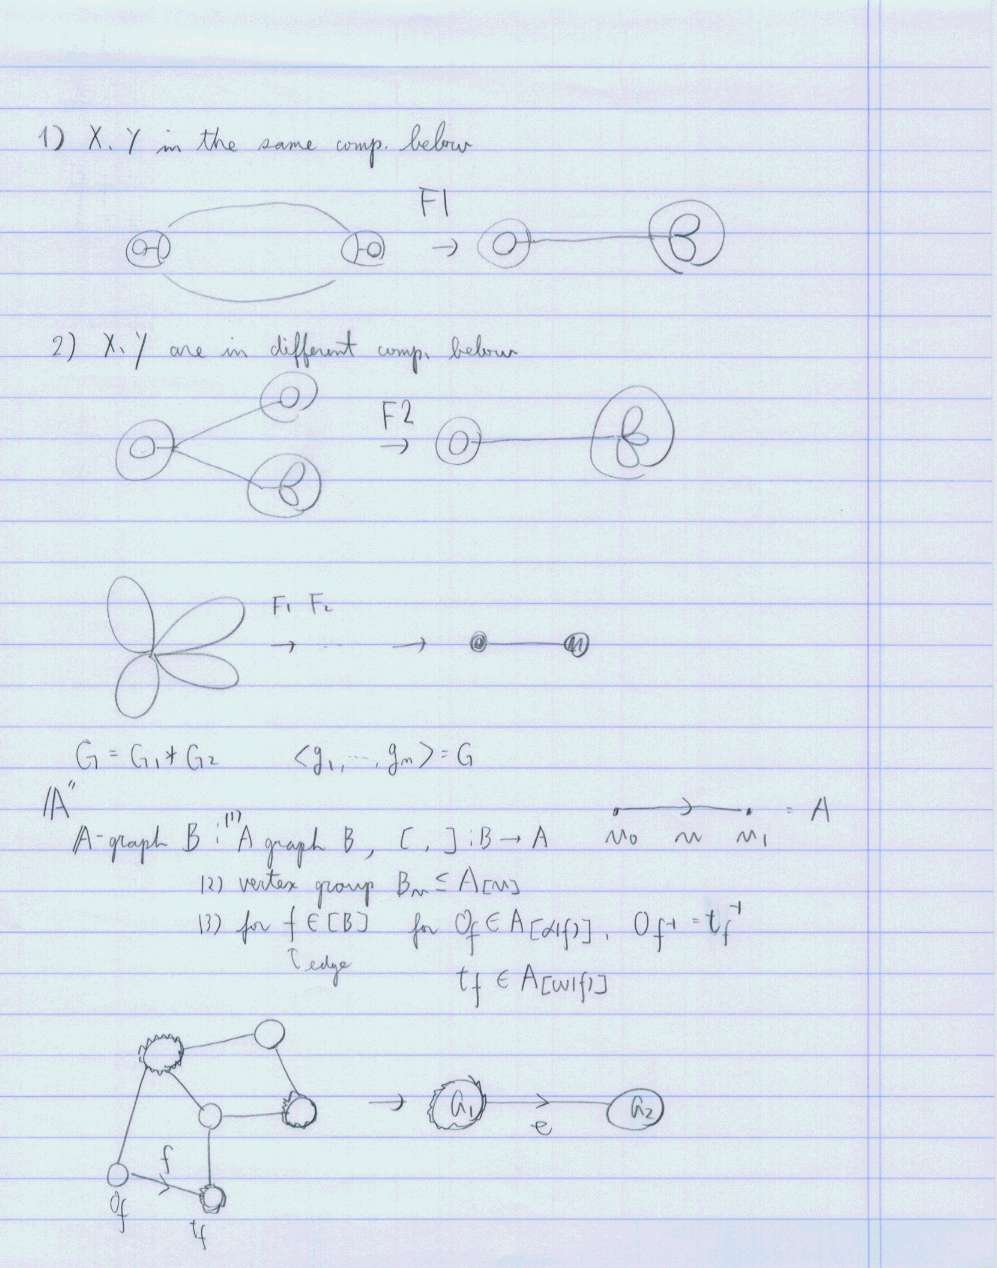 1) X, Y in the same comp. below
F1
→
2) X, Y are in different comp. below
F2
→
F₁ F₂
→ ... →
G = G₁ * G₂ <g₁, ..., gₙ> = G
"A"
A-graph B : (1) A graph B, [ , ] : B → A
v₀ v₁ = A
(2) vertex group Bᵥ ≤ A[v]
(3) for f ∈ [B] for O_f ∈ A[α(f)], O_f⁻¹ = t_f⁻¹
↑ edge
t_f ∈ A[ω(f)]
→ G₁ e G₂
f
O_f t_f